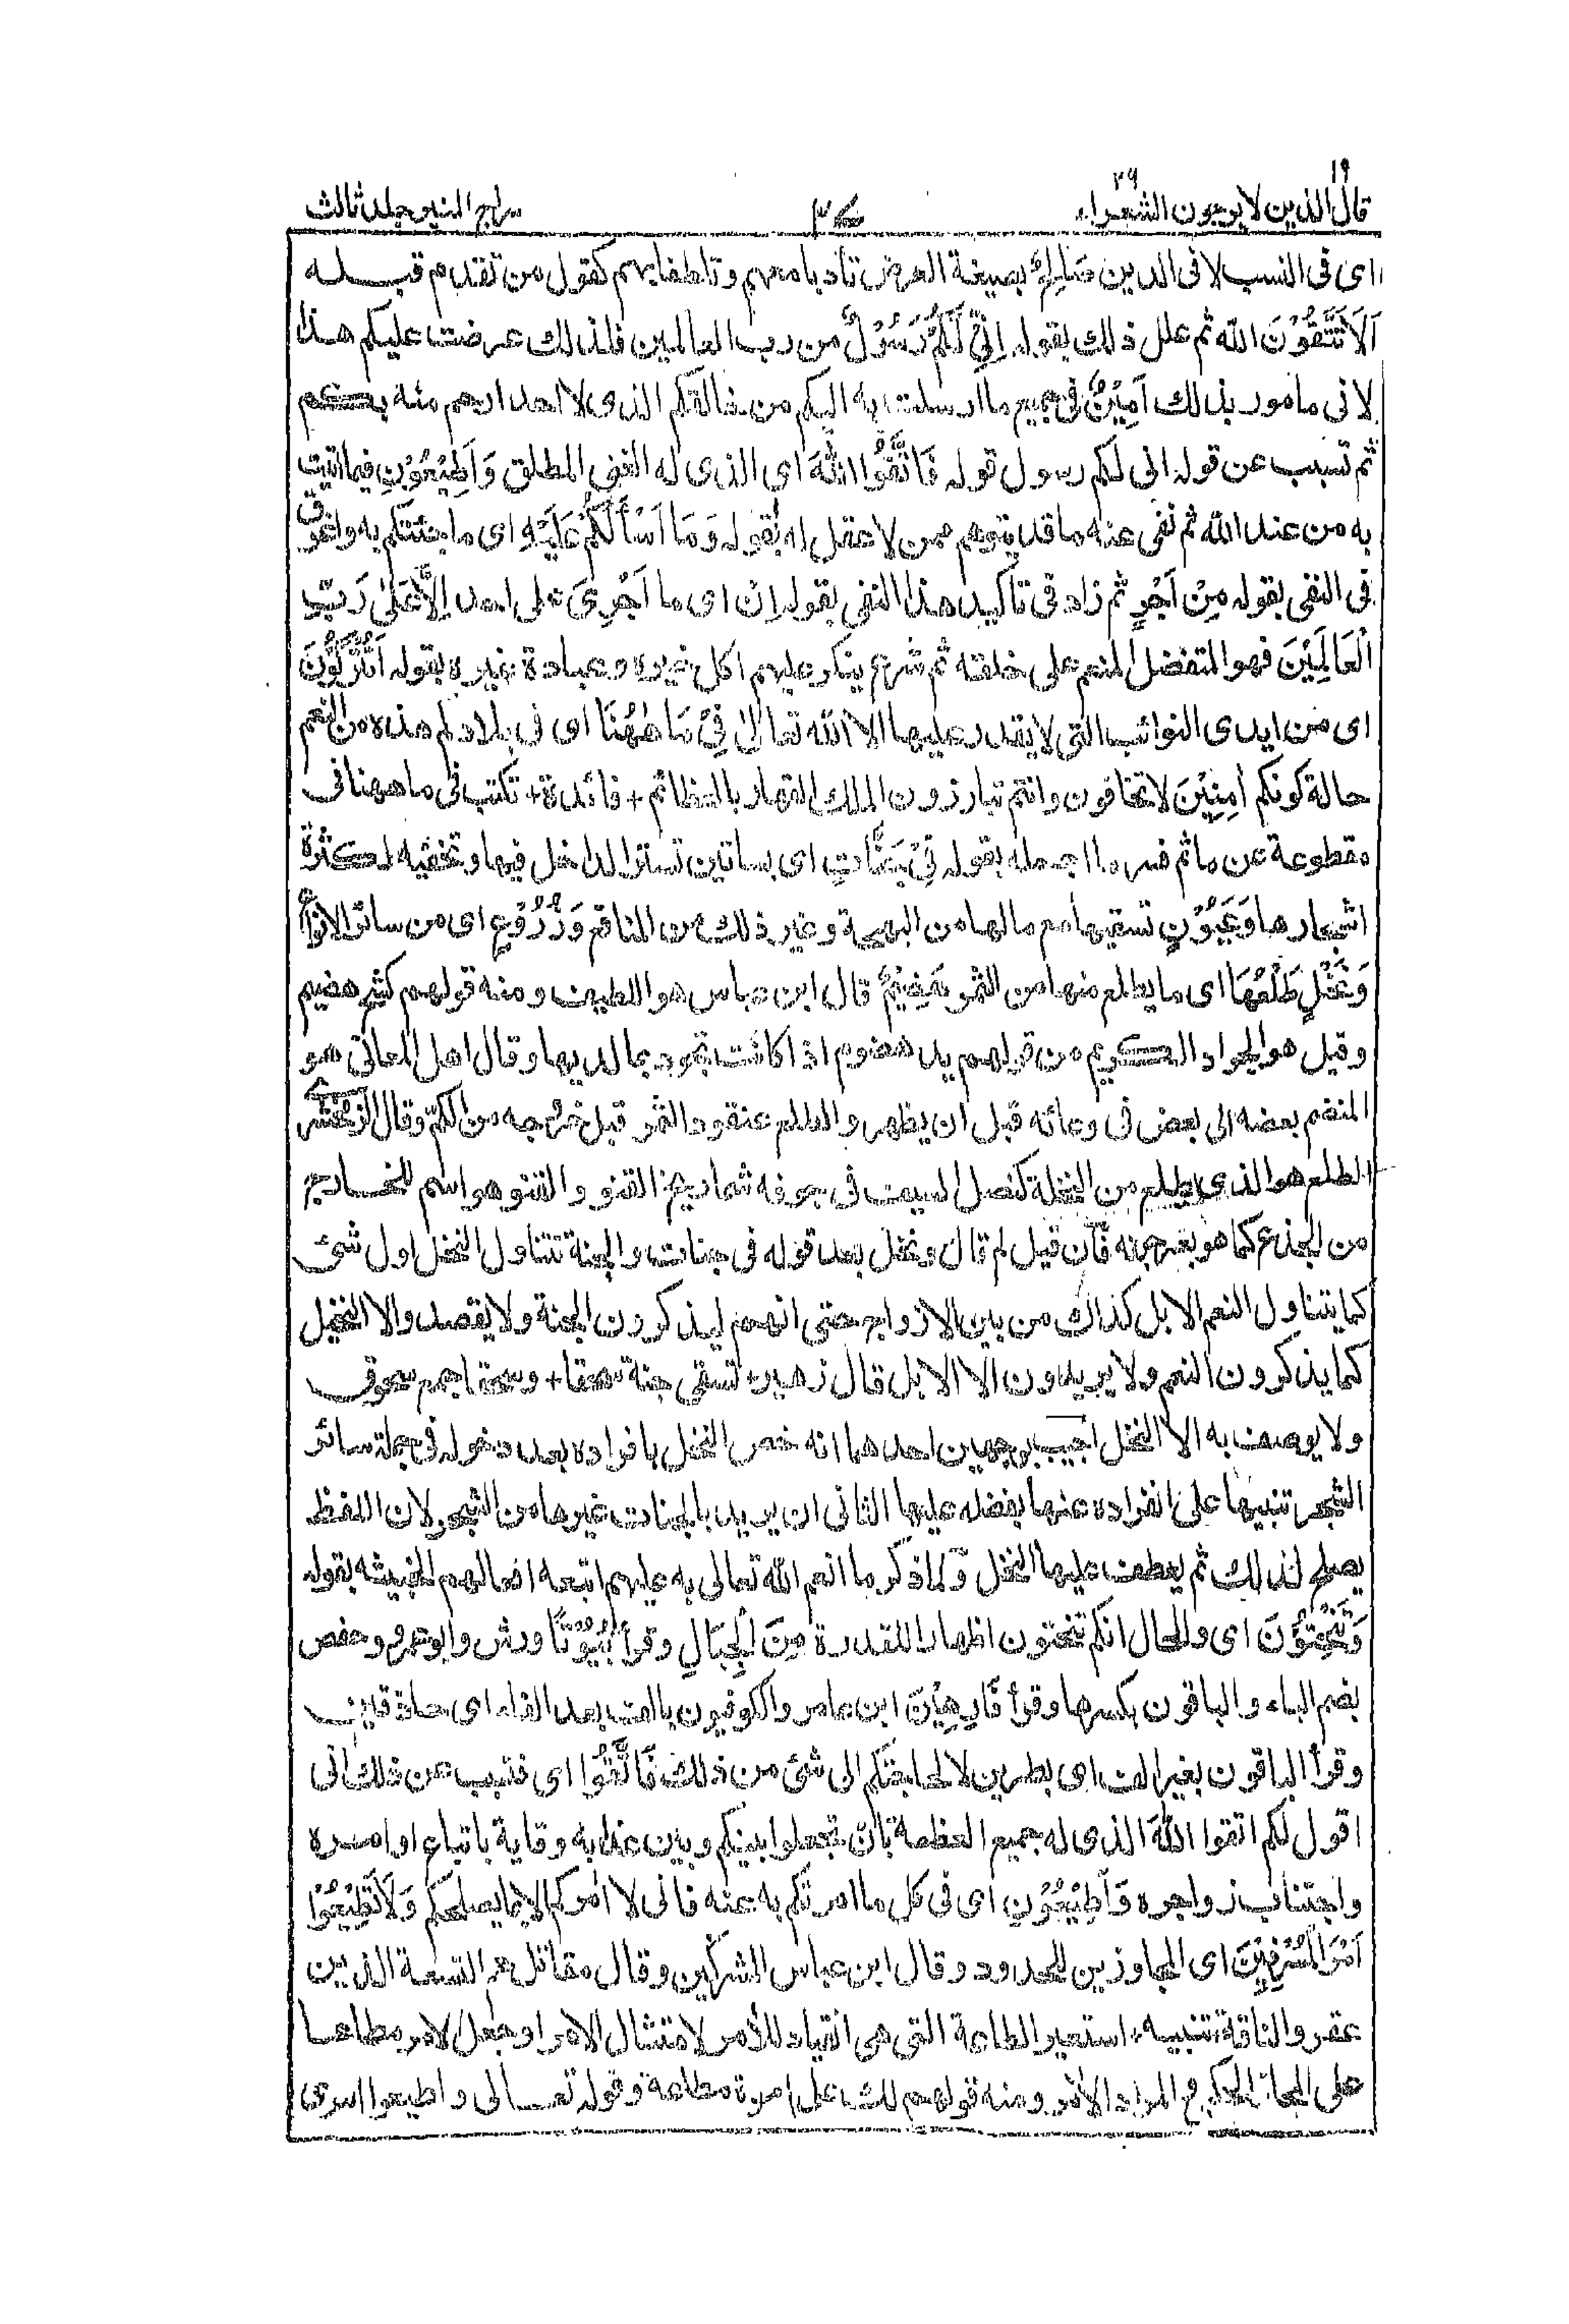 قال الذين لا يرجون ١٩ الشعراء ٢٦
سراج المنير جلد ثالث
اى فى النسب لا فى الدين صَالِحٌ بصيغة العرض تأدبا معهم وتلطفا بهم كقول من تقدم قبله
اَلَا تَتَّقُوْنَ الله ثم علل ذلك بقوله اِنِّيْ لَكُمْ رَسُوْلٌ من رب العالمين فلذلك عرضت عليكم هذا
لانى مامور بذلك اَمِيْنٌ فى جميع ما ارسلت به اليكم من خالقكم الذى لا احد ارحم منه بكم
ثم تسبب عن قوله انى لكم رسول قوله فَاتَّقُوا اللهَ اى الذى له الغنى المطلق وَاَطِيْعُوْنِ فيما اتيت
به من عند الله ثم نفى عنه ما قد يتوهم ممن لا عقل له بقوله وَمَا اَسْأَلُكُمْ عَلَيْهِ اى ما جئتكم به واغرق
فى النفى بقوله مِنْ اَجْرٍ ثم زاد فى تاكيد هذا النفى بقوله اِنْ اى ما اَجْرِيَ على احد اِلَّا عَلٰى رَبِّ
الْعَالَمِيْنَ فهو المتفضل المنعم على خلقه ثم شرع ينكر عليهم اكل خيره وعبادة غيره بقوله اَتُتْرَكُوْنَ
اى من ايدى النوائب التى لا يقدر عليها الا الله تعالى فِيْ مَا هٰهُنَا اى فى بلادكم هذه من النعم
حالة كونكم اٰمِنِيْنَ لا تخافون وانتم تبارزون الملك القهار بالعظائم + فائدة + تكتب فى ما ههنا فى
مقطوعة عن ما ثم فسر ما اجمله بقوله فِيْ جَنّٰتٍ اى بساتين تستر الداخل فيها وتخفيه لكثرة
اشجارها وَعُيُوْنٍ تسقيها مع ما لها من البهجة وغير ذلك من المنافع وَزُرُوْعٍ اى من سائر الانواع
وَنَخْلٍ طَلْعُهَا اى ما يطلع منها من الثمر هَضِيْمٌ قال ابن عباس هو اللطيف ومنه قولهم كشح هضيم
وقيل هو الجواد الكريم من قولهم يد هضوم اذا كانت تجود بما لديها وقال اهل المعانى هو
المنضم بعضه الى بعض فى وعائه قبل ان يظهر والطلع عنقود الثمر قبل خروجه من الكم وقال الزمخشرى
الطلع هو الذى يطلع من النخلة كنصل السيف فى جوفه شماريخ القنو والقنو هو اسم للخارج
من الجذع كما هو بعرجونه فان قيل لم قال ونخل بعد قوله فى جنات والجنة تتناول النخل اول شئ
كما يتناول النعم الابل كذلك من بين الازواج حتى انهم ليذكرون الجنة ولا يقصدوا الا النخيل
كما يذكرون النعم ولا يريدون الا الابل قال زهير + تسقى جنة سحقا + وسحقا جمع سحوق
ولا يوصف به الا النخل اجيب بوجهين احدهما انه خص النخل بافراده بعد دخوله فى جملة سائر
الشجر تنبيها على انفراده عنها بفضله عليها الثانى ان يريد بالجنات غيرها من الشجر لان اللفظ
يصلح لذلك ثم يعطف عليها النخل ولما ذكر ما انعم الله تعالى به عليهم اتبعه افعالهم الخبيثة بقوله
وَتَنْحِتُوْنَ اى والحال انكم تنحتون اظهارا للقدرة مِنَ الْجِبَالِ وقرأ بُيُوْتًا ورش وابوعمرو وحفص
بضم الباء والباقون بكسرها وقرأ فَارِهِيْنَ ابن عامر والكوفيون بالف بعد الفاء اى حاذقين
وقرأ الباقون بغير الف اى بطرين لا لحاجتكم الى شئ من ذلك فَاتَّقُوا اى فتسبب عن ذلك انى
اقول لكم اتقوا اللهَ الذى له جميع العظمة بان تجعلوا بينكم وبين عذابه وقاية باتباع اوامره
واجتناب زواجره وَاَطِيْعُوْنِ اى فى كل ما امرتكم به عنه فانى لا امركم الا بما يصلحكم وَلَا تُطِيْعُوْا
اَمْرَ الْمُسْرِفِيْنَ اى المجاوزين للحدود وقال ابن عباس المشركين وقال مقاتل هم التسعة الذين
عقروا الناقة تنبيه + استعير الطاعة التى هى انقياد للأمر لامتثال الامر او جعل الامر مطاعا
على المجاز الحكمى المراد الآمر ومنه قولهم لك على امرة مطاعة وقوله تعالى واطيعوا امرى